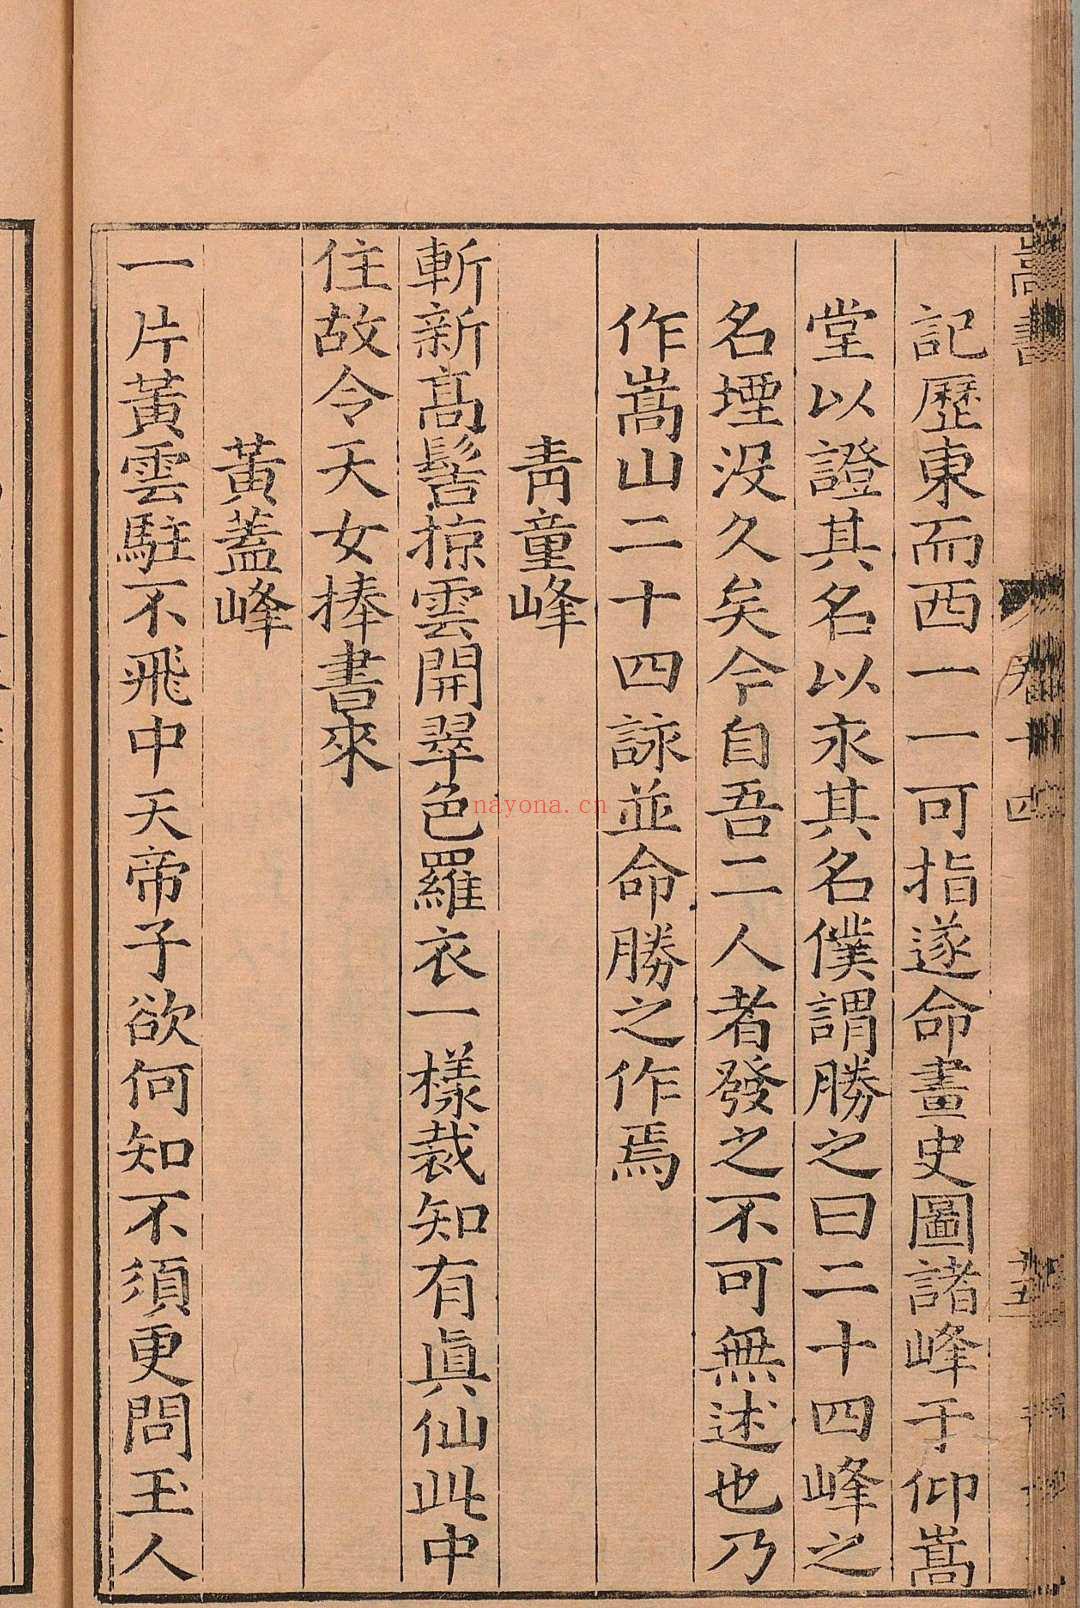 嵩書
卷十四
記歷東而西一一可指遂命畫史圖諸峰于仰嵩
堂以證其名以永其名僕謂勝之曰二十四峰之
名堙没久矣今自吾二人者發之不可無述也乃
作嵩山二十四詠並命勝之作焉
青童峰
斬新髙髻掠雲開翠色羅衣一樣裁知有眞仙此中
住故令天女捧書來
黃蓋峰
一片黃雲駐不飛中天帝子欲何知不須更問玉人
nayona.cn